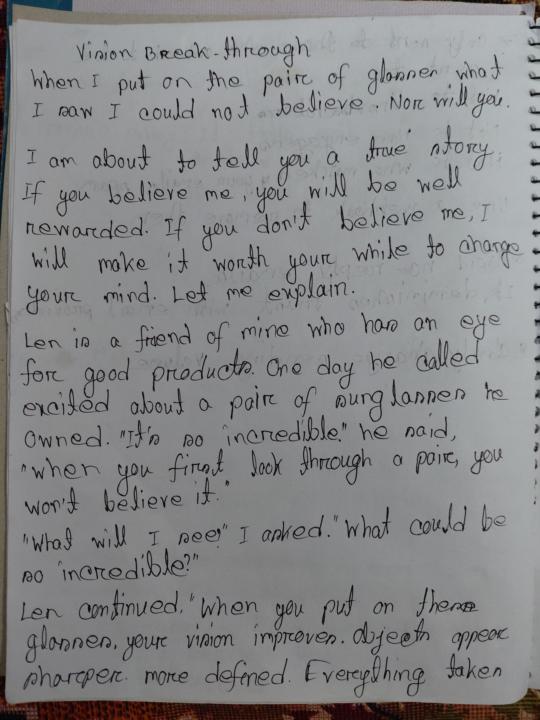 Vision Break-through
When I put on the pair of glasses what
I saw I could not believe. Nor will you.
I am about to tell you a true story.
If you believe me, you will be well
rewarded. If you don't believe me, I
will make it worth your while to change
your mind. Let me explain.
Len is a friend of mine who has an eye
for good products. One day he called
excited about a pair of sunglasses he
owned. "It's so incredible." he said,
"when you first look through a pair, you
won't believe it."
"What will I see?" I asked. "What could be
so incredible?"
Len continued. "When you put on these
glasses, your vision improves. Objects appear
sharper. more defined. Everything taken